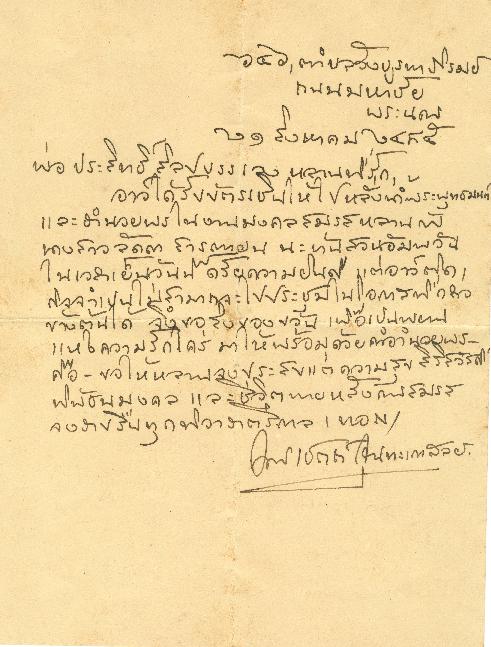 ๖๔๖, ตำบลวังบูรพาภิรมย์
ถนนมหาชัย
พระนคร
๒๑ สิงหาคม ๒๔๘๕
พ่อ ประสิทธิ์ หลานที่รัก,
อาว์ได้รับบัตรเชิญให้ไปหลั่งน้ำพระพุทธมนต์
และอำนวยพรในงานมงคลสมรสหลานกับ
นางสาว ณ
ในเวลาเย็นวันนี้ ด้วยความยินดี แต่อาว์
จำเป็นไม่สามารถจะไปประชุมในโอกาส
ข้างต้นได้ จึ่งขอส่งของขวัญ เพื่อเป็นพยาน
แห่งความรักใคร่ มาให้พร้อมด้วยคำอำนวยพร-
คือ - ขอให้หลานจงประสบแต่ความสุข สิริสวัสดิ์
พิพัฒนมงคล และชีวิตภายหลังการสมรส
จงราบรื่นทุกทิวาราตรีกาล เทอญ/